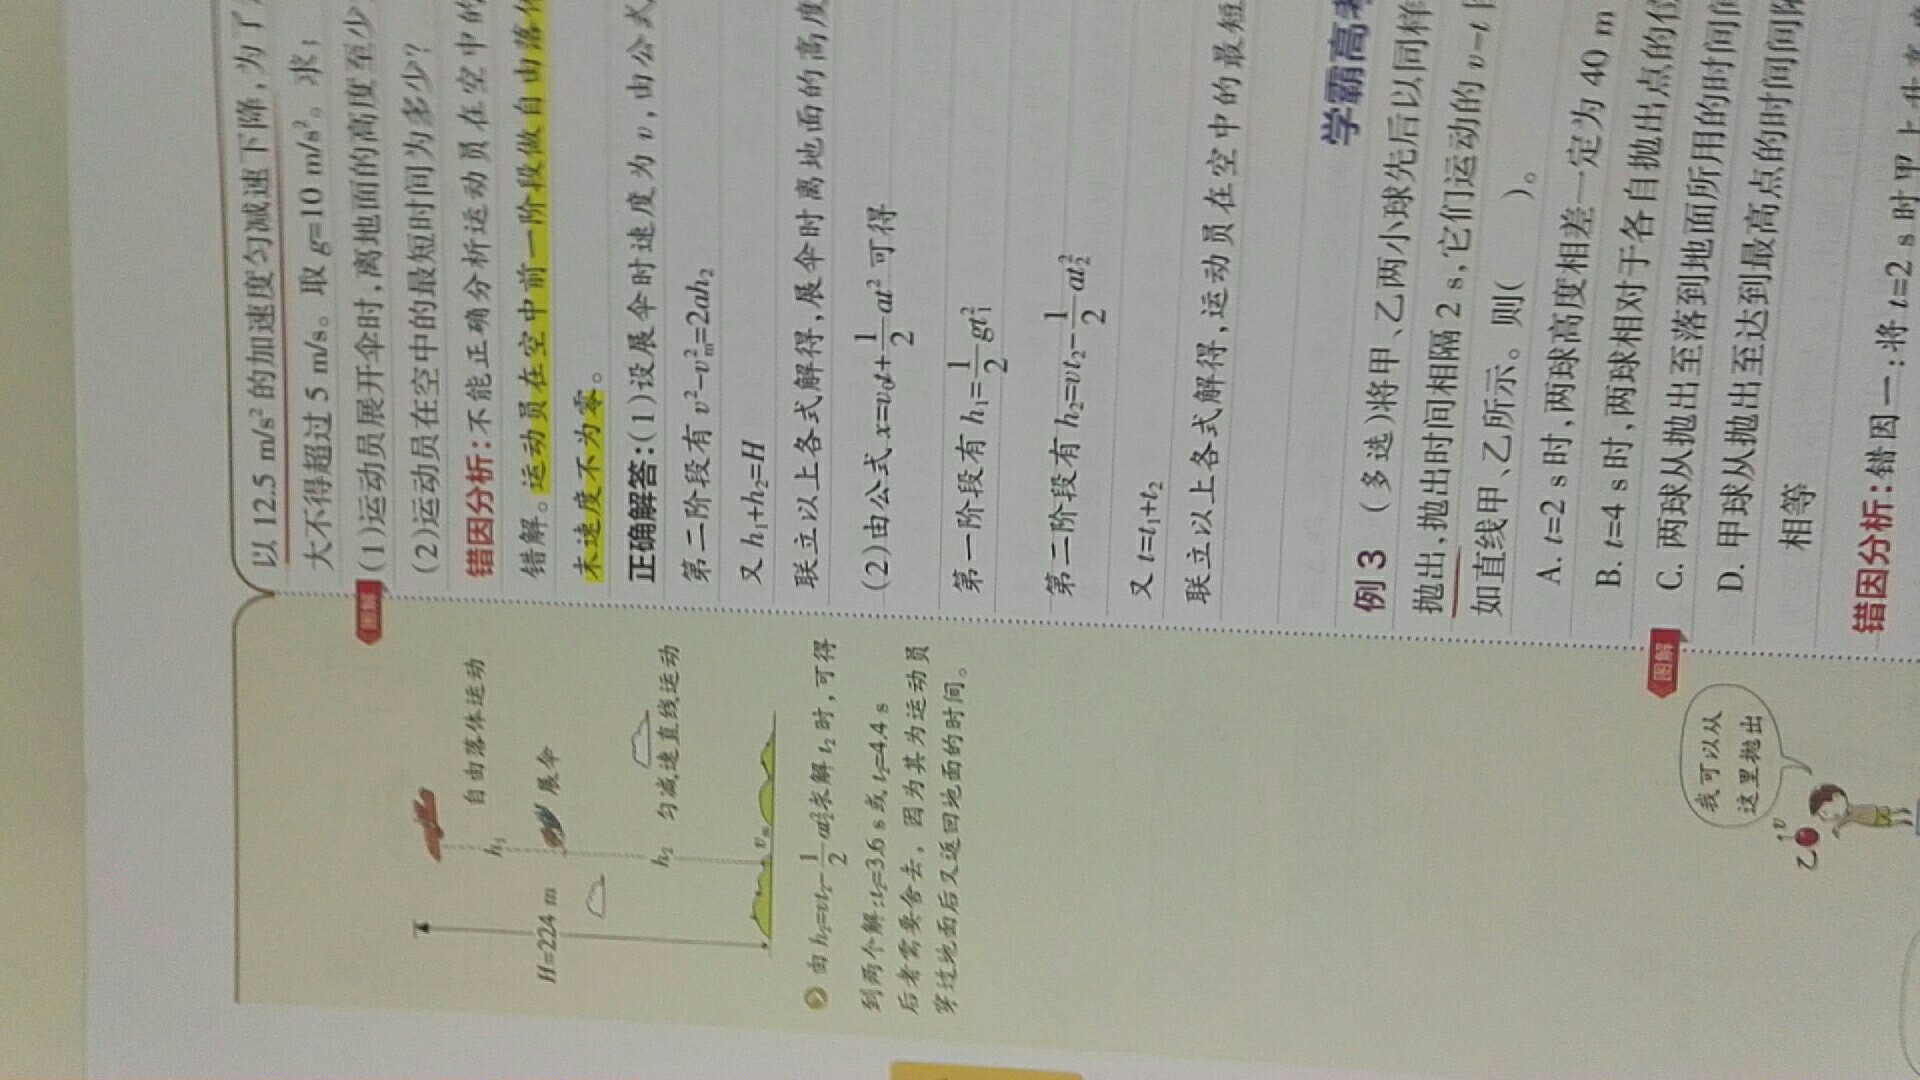 以 12.5 m/s² 的加速度匀减速下降,为了
大不得超过 5 m/s。取 g=10 m/s²。求:
(1)运动员展开伞时,离地面的高度至少
(2)运动员在空中的最短时间为多少?
错因分析:不能正确分析运动员在空中的
错解。运动员在空中前一阶段做自由落体
末速度不为零。
正确解答:(1)设展伞时速度为 v,由公式
第二阶段有 v²-vₘ²=2ah₂
又 h₁+h₂=H
联立以上各式解得,展伞时离地面的高度
(2)由公式 x=v₀t+1/2at² 可得
第一阶段有 h₁=1/2gt₁²
第二阶段有 h₂=vt₂-1/2at₂²
又 t=t₁+t₂
联立以上各式解得,运动员在空中的最短
学霸高考
例 3 (多选)将甲、乙两小球先后以同样
抛出,抛出时间相隔 2 s,它们运动的 v-t
如直线甲、乙所示。则( )。
A. t=2 s 时,两球高度相差一定为 40 m
B. t=4 s 时,两球相对于各自抛出点的位
C. 两球从抛出至落到地面所用的时间间
D. 甲球从抛出至达到最高点的时间间隔
相等
错因分析:错因一:将 t=2 s 时甲上升高
图解
自由落体运动
h₁
展伞
H=224 m
h₂
匀减速直线运动
vₘ
由 h₂=vt₂-1/2at₂²求解 t₂ 时,可得
到两个解:t₂=3.6 s 或 t₂=4.4 s
后者需要舍去,因为其为运动员
穿过地面后又返回地面的时间。
图解
我可以从
这里抛出
v
乙